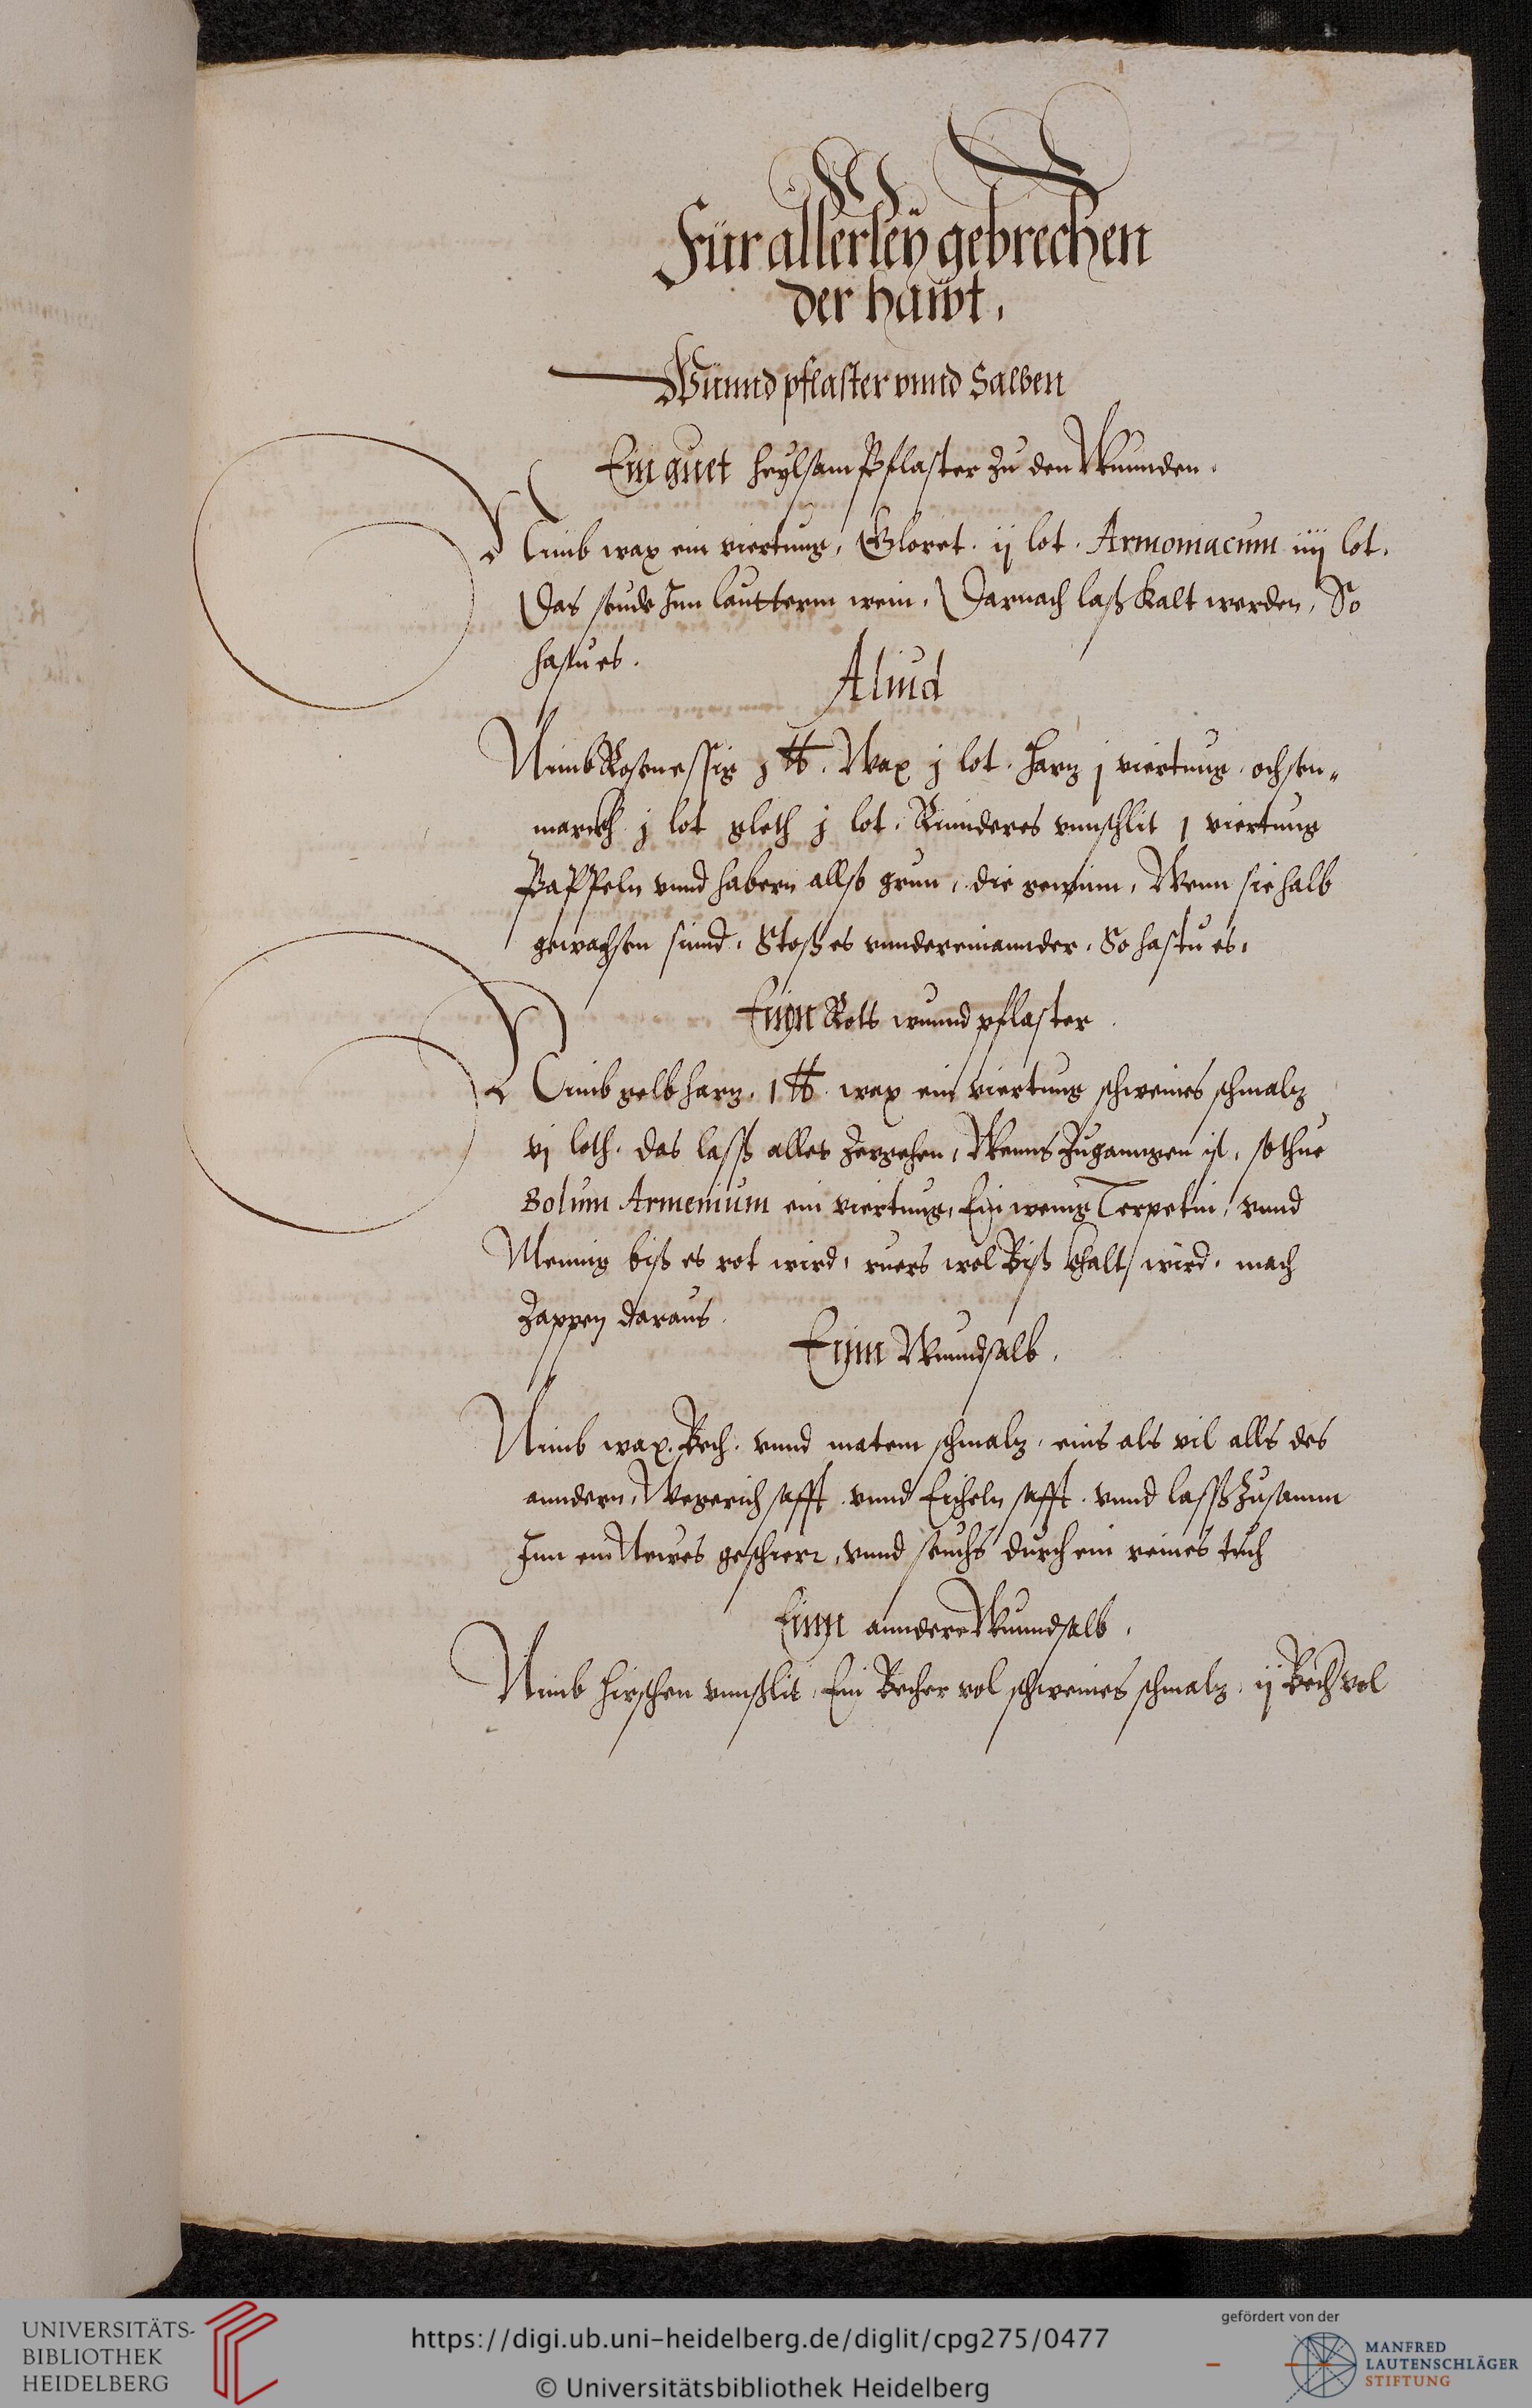 Für allerley gebrechen
der hawt.
Wunnd pflaster vnnd Salben
Ein guet heylsam Pflaster zu den Wunnden.
Nimb wax ein viertung, Gloret. ij lot. Armoniacum iiij lot.
Das seude Inn lautterm wein. Darnach laß kalt werden, So
hastu es.
Aliud
Nimb Rosenessig j ℔. Wax j lot. Harz j viertung. ochsen-
marckh j lot gleth j lot. Rinnderes vnnschlit j viertung
Pappeln vnnd habern allso grun, die gewinn, Wenn sie halb
gewachsen sinnd. Stoß es vnndereinannder. So hastu es.
Einn Rott wunnd pflaster
Nimb gelb harz. j ℔. wax ein viertung schweines schmalz
vj loth. das lasß alles zergehen, Wenns zuganngen ist, so thue
Bolum Armenium ein viertung, Ein wenig Terpetin, vnnd
Mennig biß es rot wird, ruers wol Biß khalt wird. mach
Zappen daraus.
Einn Wunndsalb.
Nimb wax. Bech. vnnd maten schmalz, eins als vil alls des
anndern, Wegerich safft. vnnd Eicheln safft. vnnd lasß zusamm
Inn ein Newes geschierr, vnnd seuchs durch ein reines tuch
Einn anndere Wunndsalb.
Nimb hirschen vnnschlit, Ein Becher vol schweines schmalz, ij Bech vol
UNIVERSITÄTS-
BIBLIOTHEK
HEIDELBERG
https://digi.ub.uni-heidelberg.de/diglit/cpg275/0477
© Universitätsbibliothek Heidelberg
gefördert von der
MANFRED
LAUTENSCHLÄGER
STIFTUNG